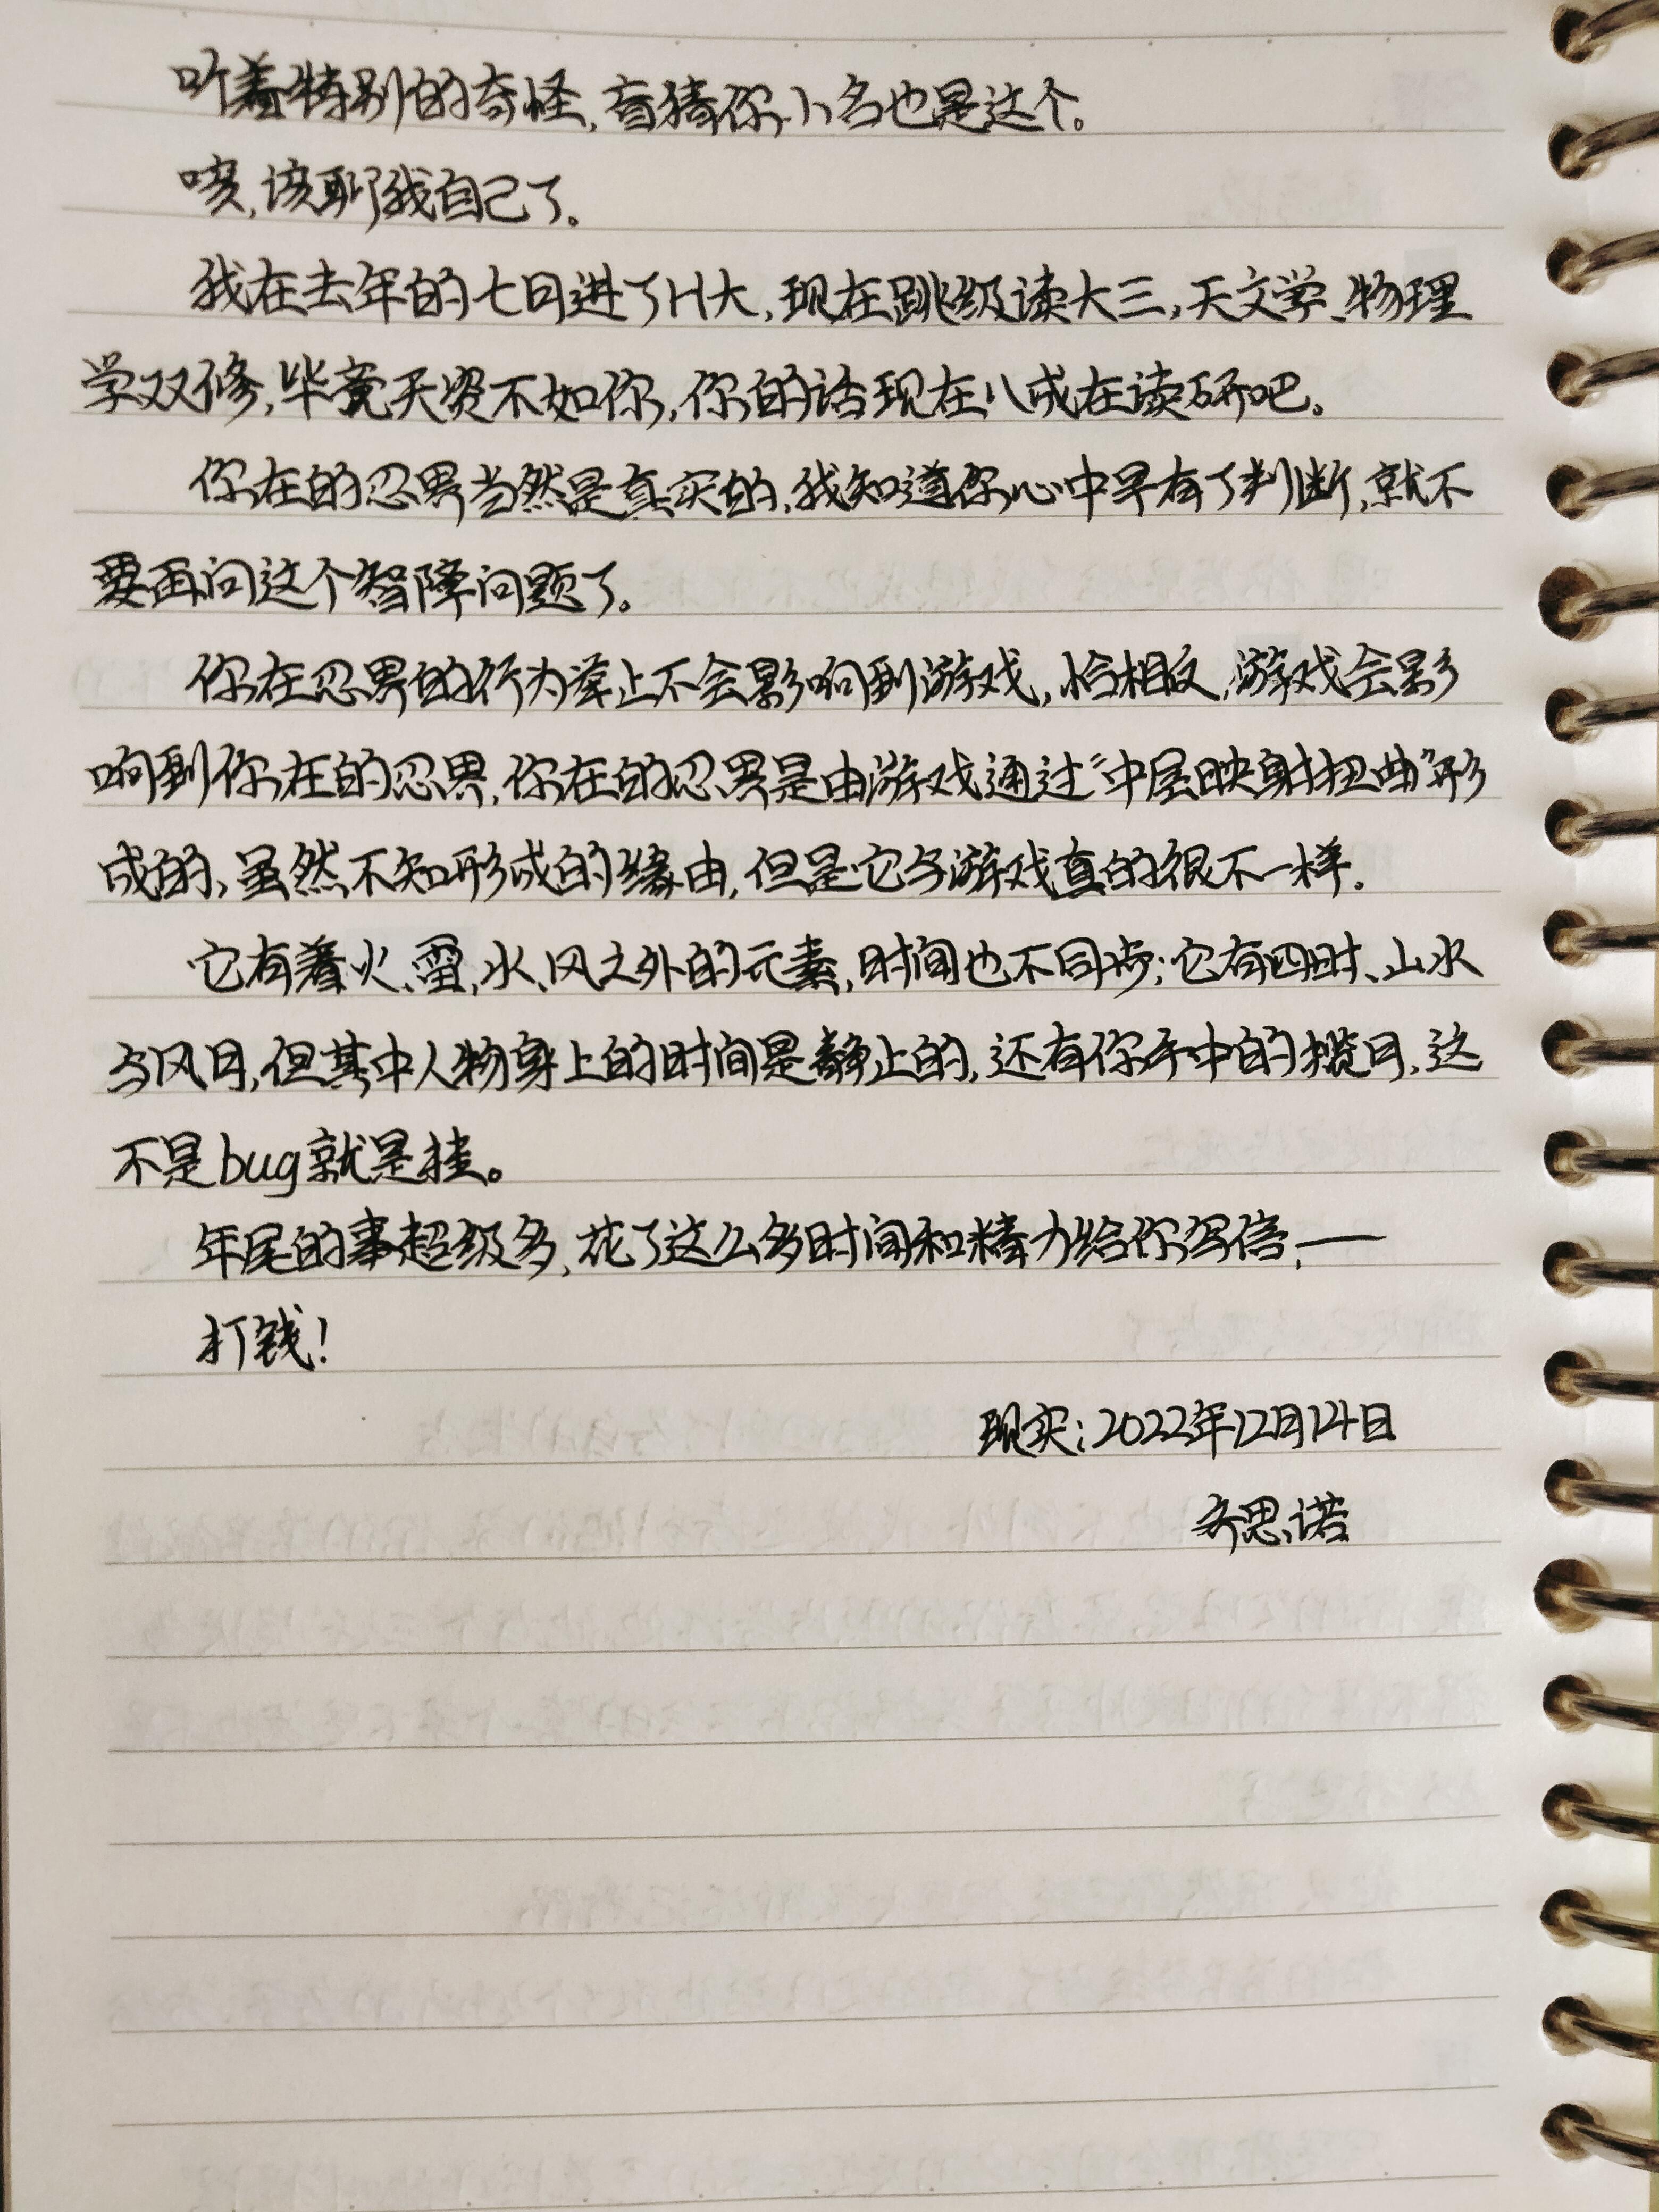 听着特别的奇怪，盲猜你小名也是这个。
咳，该聊我自己了。
我在去年的七月进了H大，现在跳级读大三，天文学、物理
学双修，毕竟天资不如你，你的话现在八成在读研吧。
你在的忍界当然是真实的，我知道你心中早有了判断，就不
要再问这个智障问题了。
你在忍界的行为举止不会影响到游戏，恰相反，游戏会影
响到你在的忍界，你在的忍界是由游戏通过“中层映射扭曲”形
成的，虽然不知形成的缘由，但是它与游戏真的很不一样。
它有着火、雷、水、风之外的元素，时间也不同步；它有四时、山水
与风月，但其中人物身上的时间是静止的，还有你手中的揽月，这
不是bug就是挂。
年尾的事超级多，花了这么多时间和精力给你写信，——
打钱！
现实：2022年12月14日
齐思诺